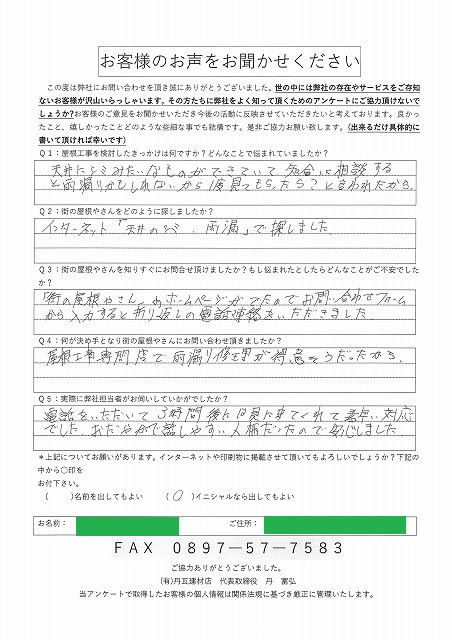 お客様のお声をお聞かせください
この度は弊社にお問い合わせを頂き誠にありがとうございました。世の中には弊社の存在やサービスをご存知
ないお客様が沢山いらっしゃいます。その方たちに弊社をよく知って頂くためのアンケートにご協力頂けないで
しょうか?お客様のご意見をお聞かせいただき今後の活動に反映させていただきたいと考えております。良かっ
たこと、嬉しかったことどのような些細な事でも結構です。是非ご協力お願い致します。(出来るだけ具体的に
書いて頂ければ幸いです)
Q1：屋根工事を検討したきっかけは何ですか?どんなことで悩まれていましたか?
天井にシミみたいなものができていて 知合いに相談する
と雨漏りかもしれないから1度見てもらったら?と言われたから.
Q2：街の屋根やさんをどのように探しましたか?
インターネット「天井のシミ、雨漏」で探しました
Q3：街の屋根やさんを知りすぐにお問合せ頂けましたか?もし悩まれたとしたらどんなことがご不安でした
か?
「街の屋根やさん」のホームページがでたのでお問い合わせフォーム
から入力すると折り返しの電話連絡をいただきました
Q4：何が決め手となり街の屋根やさんにお問い合わせ頂きましたか?
屋根工事専門店で雨漏り修理が得意そうだったから.
Q5：実際に弊社担当者がお伺いしていかがでしたか?
電話をいただいて3時間後に見に来てくれて素早い対応
でした おだやかで話しやすい人柄だったので安心しました
＊上記についてお願いがあります。インターネットや印刷物に掲載させて頂いてもよろしいでしょうか?下記の
中から〇印を
お付下さい。
(　　)名前を出してもよい　　(　○　)イニシャルなら出してもよい
お名前：　　ご住所：
FAX 0897－57－7583
ご協力ありがとうございました。
(有)丹瓦建材店　代表取締役　丹　富弘
当アンケートで取得したお客様の個人情報は関係法規に基づき厳正に管理いたします。